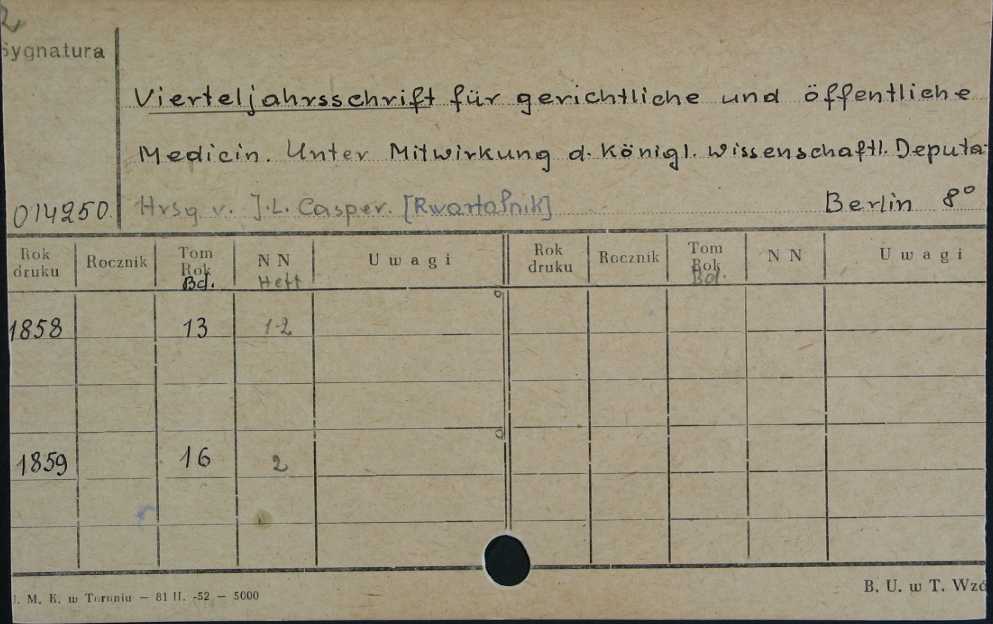 Sygnatura
Vierteljahrsschrift für gerichtliche und öffentliche
Medicin. Unter Mitwirkung d. Königl. Wissenschaftl. Deputa-
014250 Hrsg v. J.L. Casper. [Kwartalnik] Berlin 8°
Rok druku Rocznik Tom Rok Bd. NN Heft Uwagi Rok druku Rocznik Tom Rok Bd. NN Uwagi
1858 13 1-2
1859 16 2
U. M. K. w Toruniu — 81 II. -52 — 5000
B. U. w T. Wzó